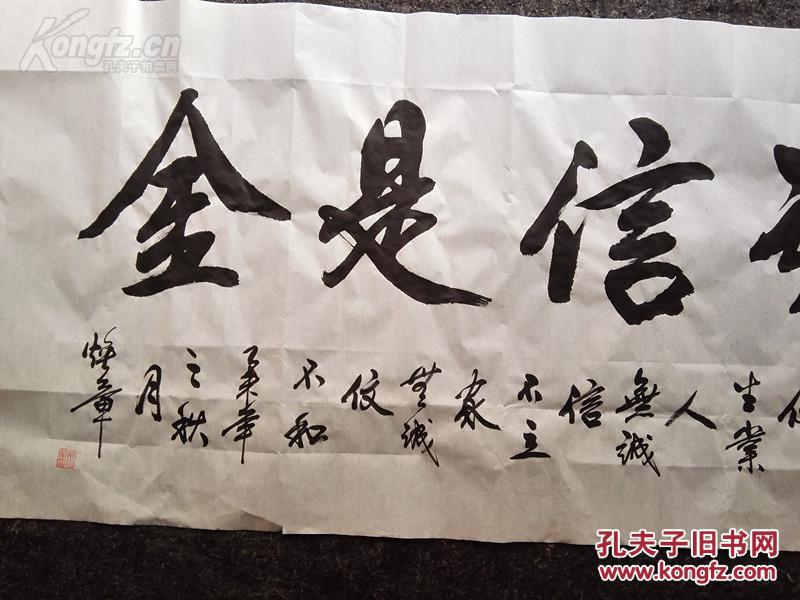 Kongfz.cn
孔夫子拍卖网
信是金
生業
人
無誠
信
不立
家
無誠
不和
之秋
月
焕章
孔夫子旧书网
www.kongfz.com